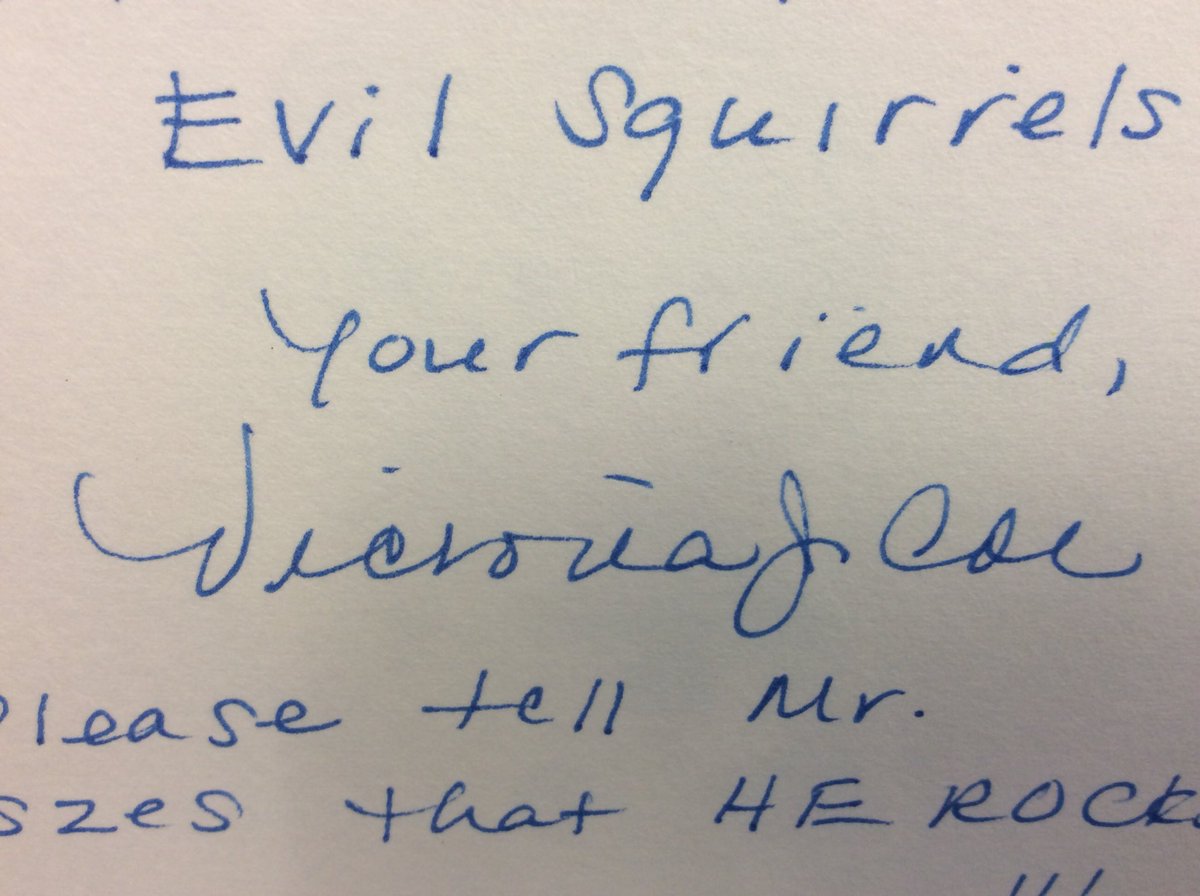 Evil Squirrels
Your friend,
Victoria J Coe
Please tell Mr.
szes that HE ROCKS
!!!